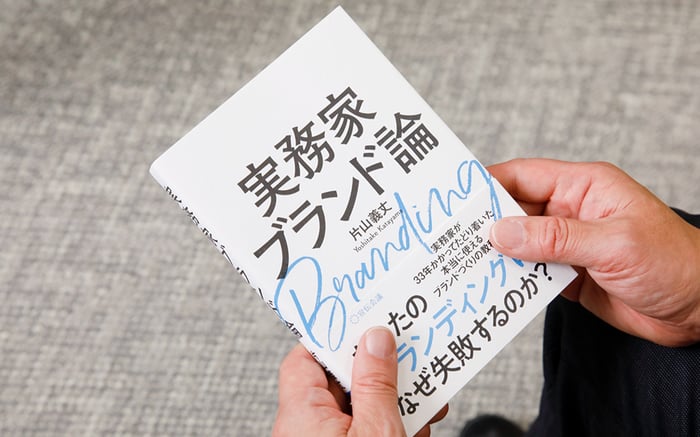 実務家
ブランド論
片山義丈
Yoshitake Katayama
Branding
実務家が
33年かかってたどり着いた
本当に使える
ブランドつくりの教
宣伝会議
たの
ランディング
なぜ失敗するのか?